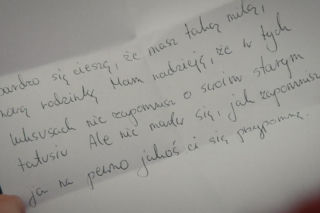 bardzo się cieszę, że masz taką miłą,
nową rodzinkę. Mam nadzieję, że w tych
luksusach nie zapomnisz o swoim starym
tatusiu. Ale nie martw się, jak zapomnisz
ja na pewno jakoś ci się przypomnę.